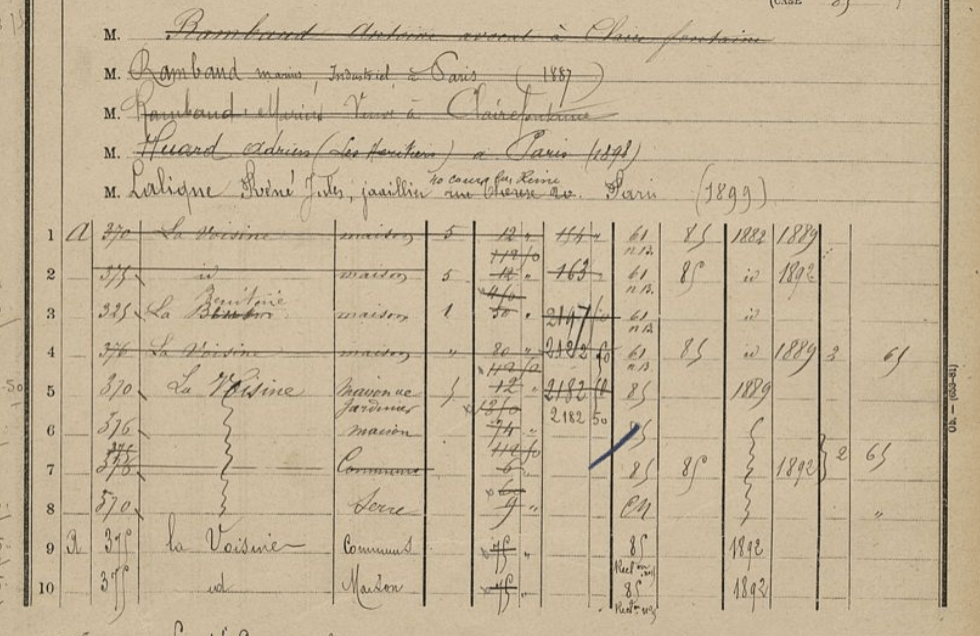 (CASE 85
M. Rambaud Antoine avocat à Claire fontaine
M. Rambaud marius, Industriel à Paris (1887)
M. Rambaud Marius Veuve à Clairefontaine
M. Huard Adrien (Les héritiers) à Paris (1898)
40 cours la Reine
M. Laligne Réné Jules, joaillier rue Thérèse 20. Paris (1899)
1 A 370 La Voisine maison 5 12 " 154 " 61 85 1882 1889
n B.
112/0
2 375 id maison 5 12 " 163 " 61 85 id 1892
n B.
4/0
3 325 La maison 1 30 " 2197 61 id
n B.
4 376 La Voisine maison " 80 " 2182 50 61 85 id 1889 2 65
n B.
112/0
5 370 La Voisine 12 " 2182 50 85 1889
Jardinier 13/0 2182 50
6 376 maison 74 " 85
375 112/0
7 376 Communs 6 " 85 85 1892 2 65
60
8 370 Serre 9 " CN "
9 A 375 la Voisine Communs 75 " 85 1892
10 375 id Maison 75 " 85 1892